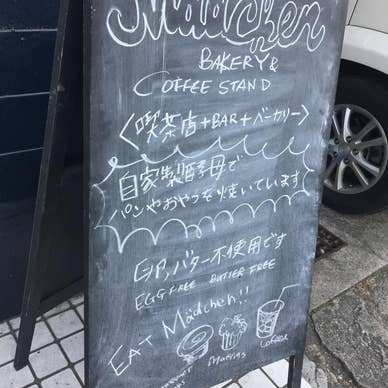 Mädchen
BAKERY &
COFFEE STAND
<喫茶店+BAR+ベーカリー>
自家製酵母で
パンやおやつを焼いています
卵、バター不使用です
EGG FREE BUTTER FREE
EAT Mädchen!!
Muffins
Coffee